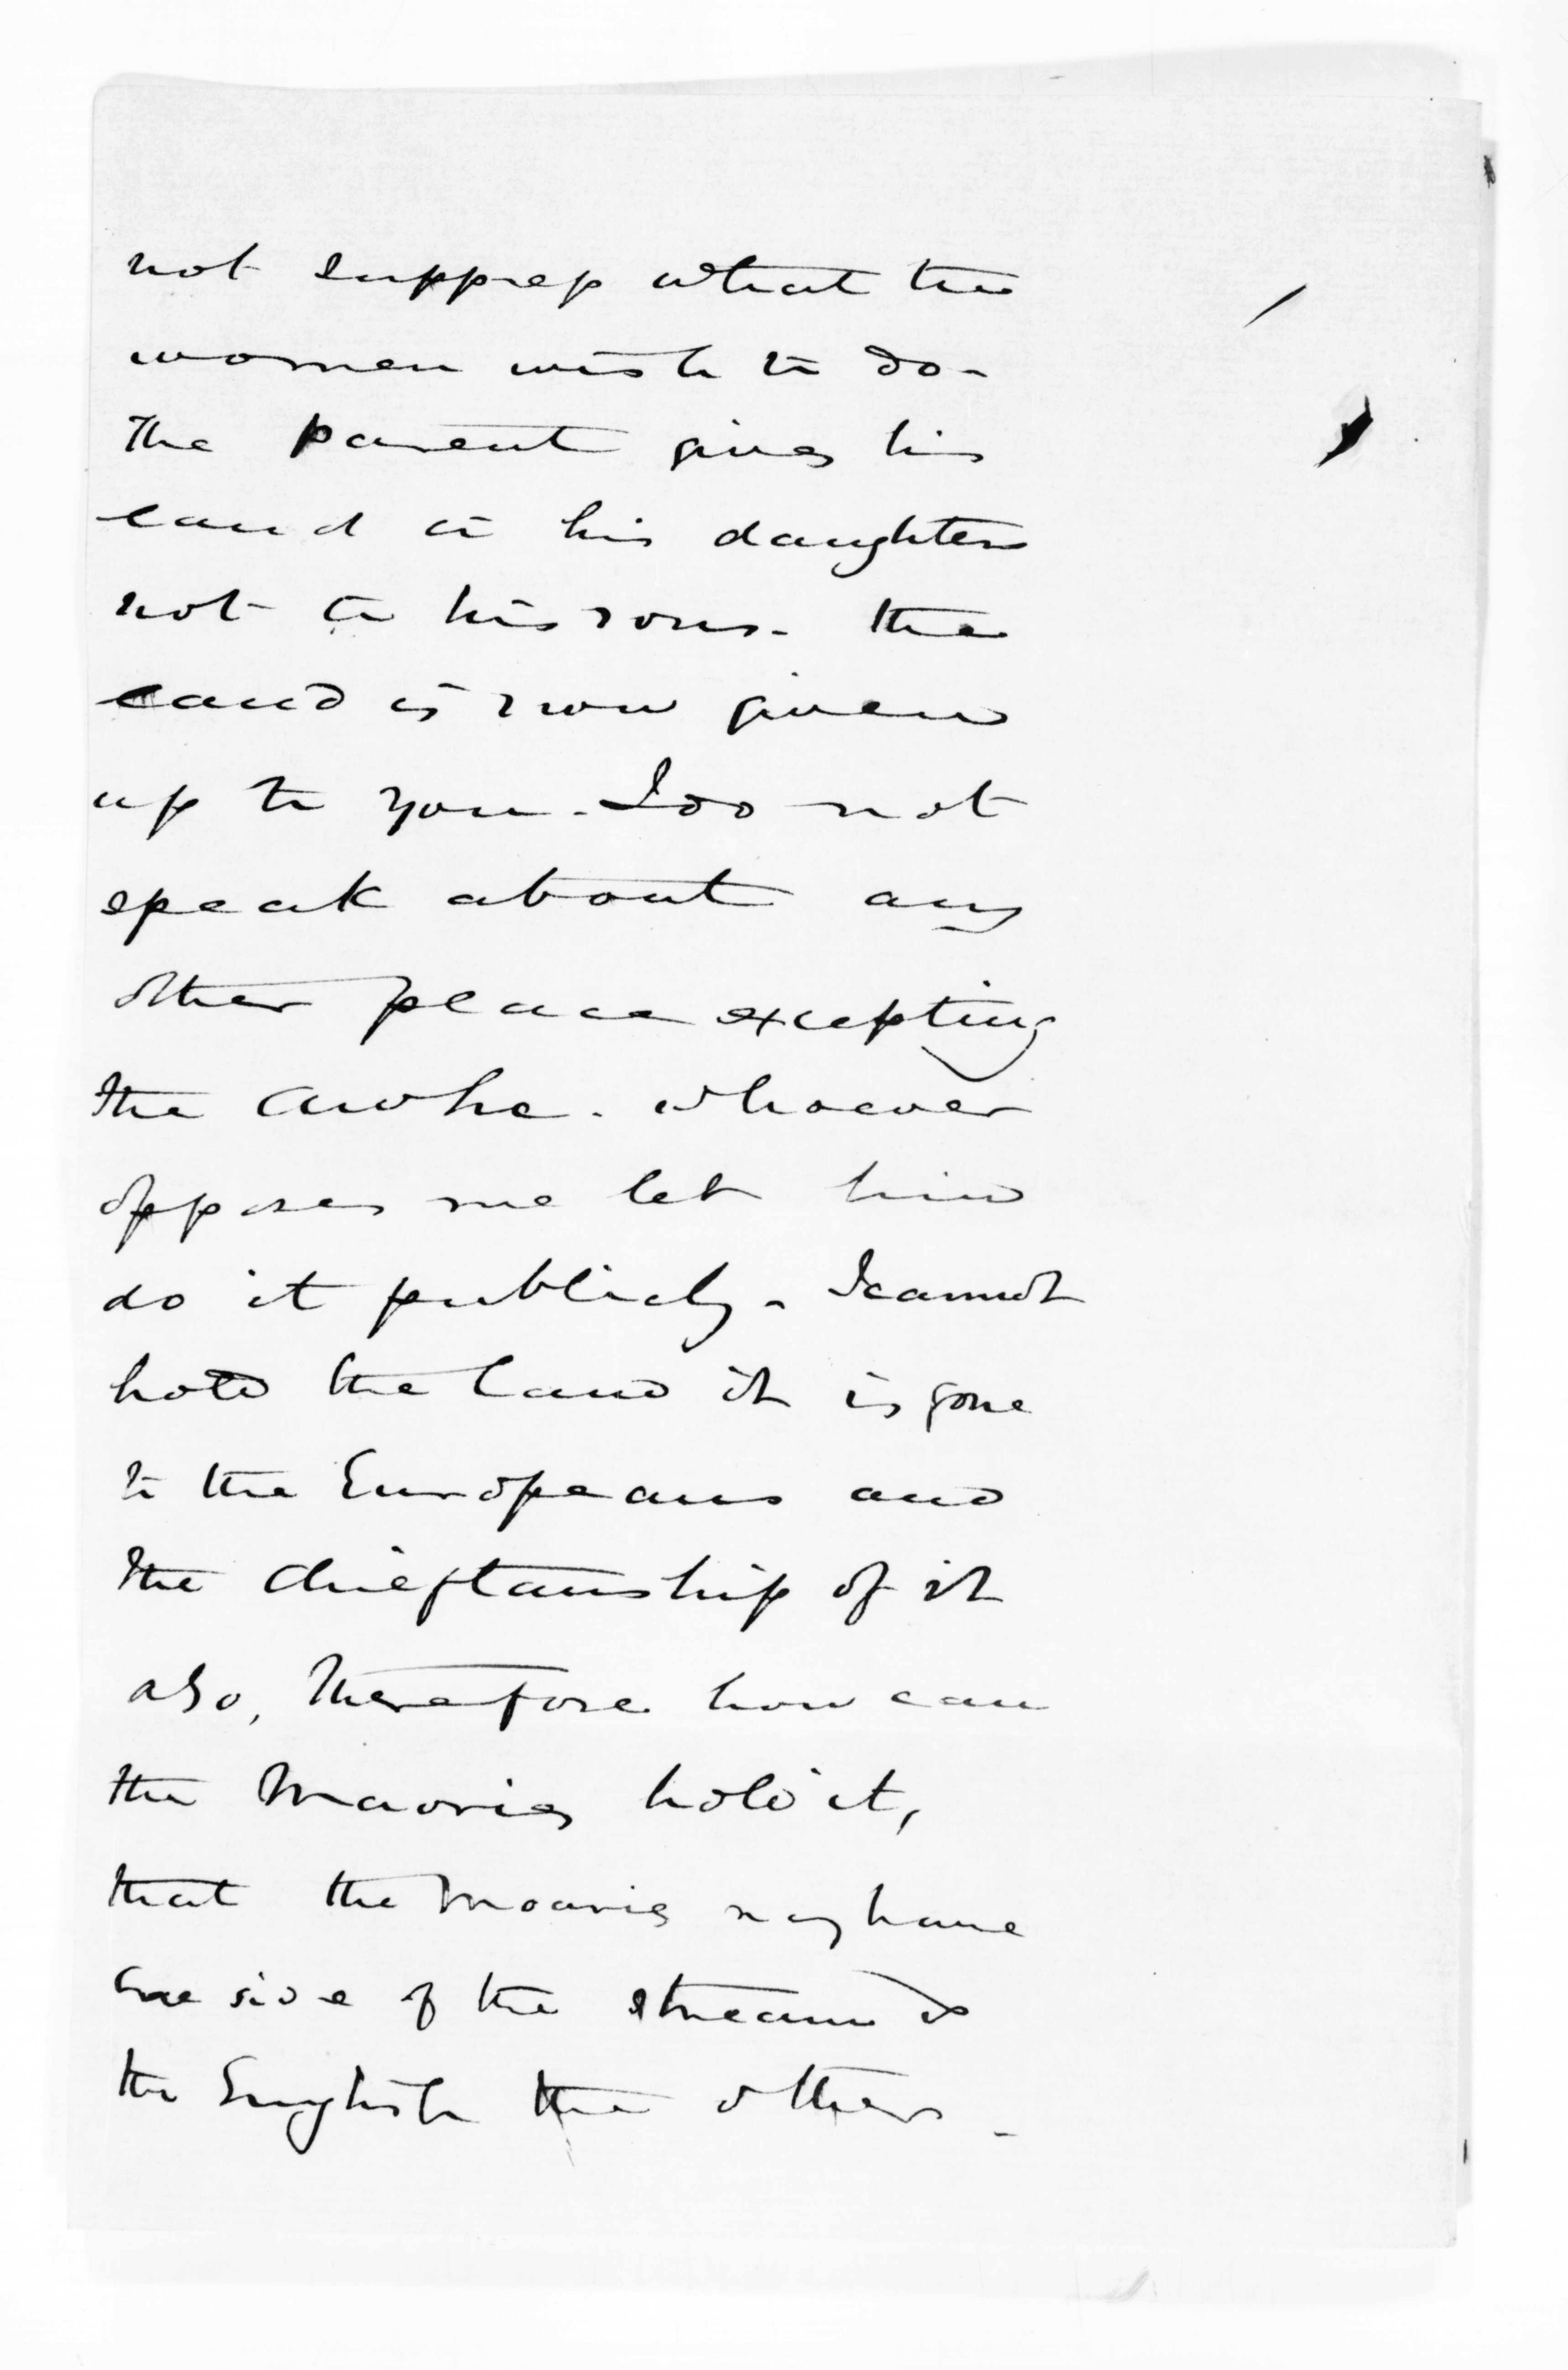 not suppress what the
women wish to do -
The parent gives his
land to his daughters
not to his sons - the
land is now given
up to you - I do not
speak about any
other place excepting
the Awhe. whoever
opposes me let him
do it publicly - I cannot
hold the land it is gone
to the Europeans and
the chieftanship of it
also, Therefore how can
the Maories hold it,
that the Maories may have
one side of the stream &
the English the other -